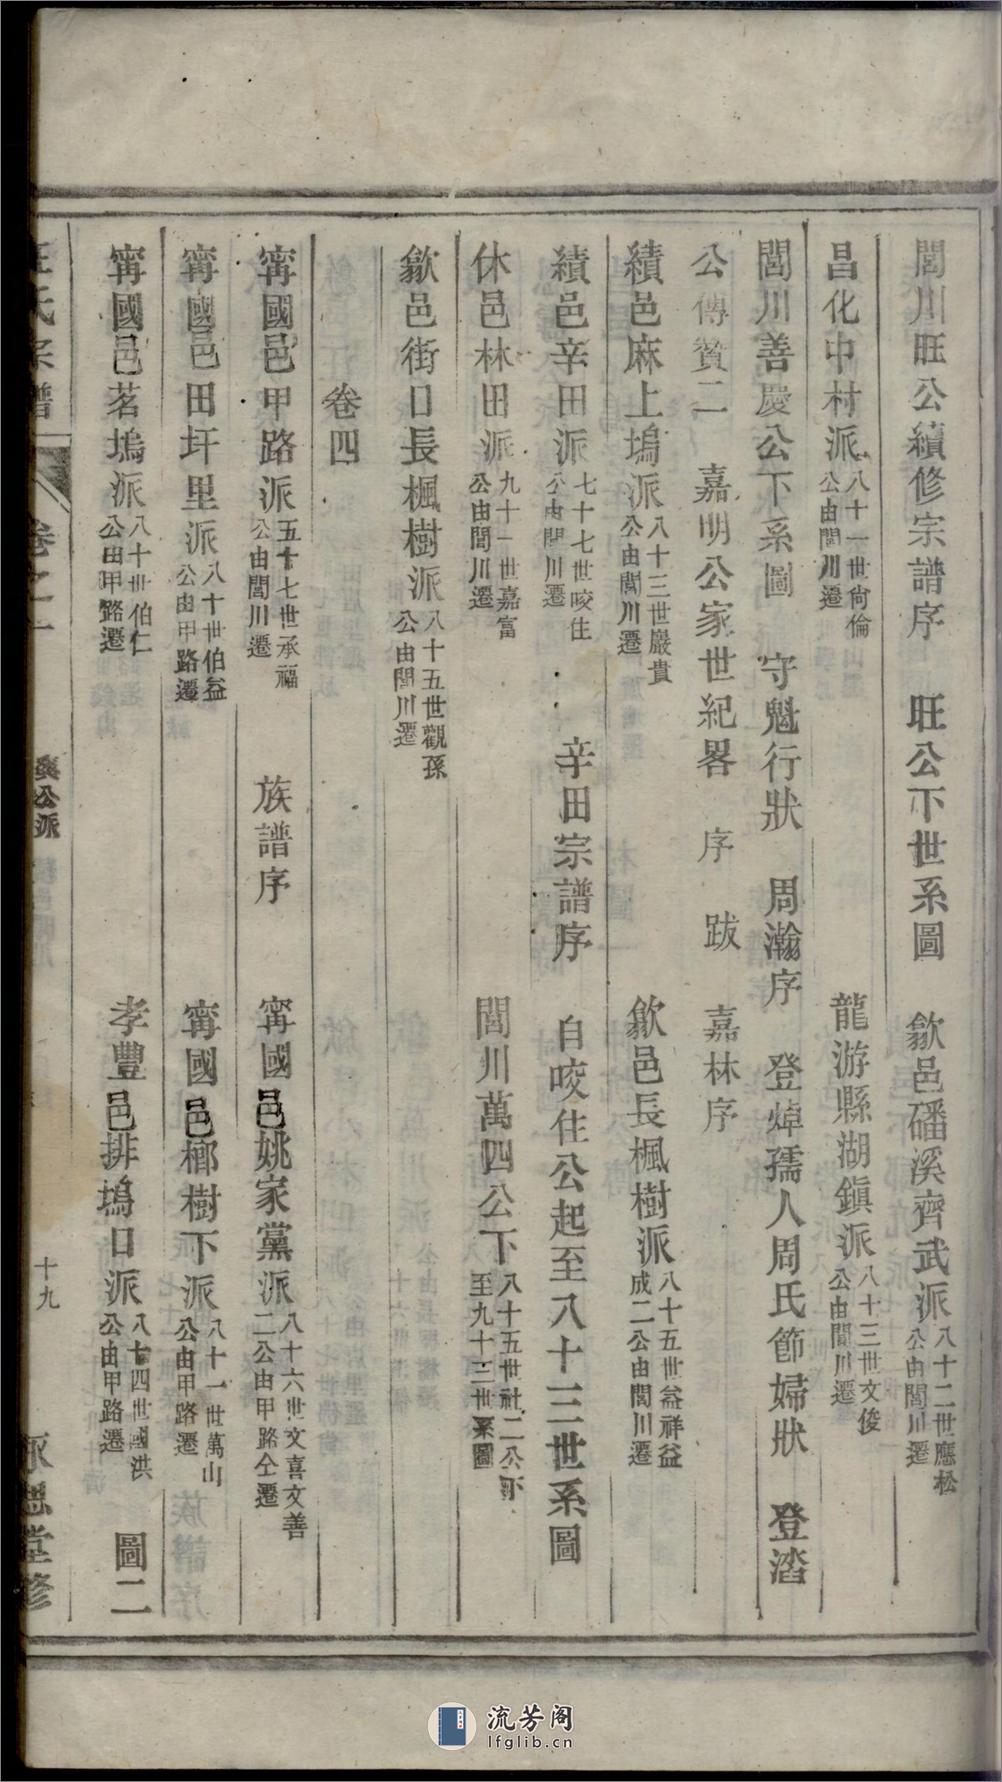 閭川旺公續修宗譜序　旺公下世系圖　歙邑磻溪齊武派八十二世應松公由閭川遷
昌化中村派八十一世尙倫公由閭川遷　龍游縣湖鎭派八十三世文俊公由閭川遷
閭川善慶公下系圖　守魁行狀　周瀚序　登焯孺人周氏節婦狀　登濳
公傳贊二　嘉明公家世紀畧　序　跋　嘉林序
績邑麻上塢派八十三世巖貴公由閭川遷　歙邑長楓樹派八十五世益祥益成二公由閭川遷
績邑辛田派七十七世咬住公由閭川遷　辛田宗譜序　自咬住公起至八十三世系圖
休邑林田派九十一世嘉富公由閭川遷　閭川萬四公下八十五世社二公下至九十三世系圖
歙邑街口長楓樹派八十五世觀孫公由閭川遷
卷四
甯國邑甲路派五十七世承福公由閭川遷　族譜序　甯國邑姚家黨派八十六世文喜文善二公由甲路仝遷
甯國邑田圩里派八十世伯益公由甲路遷　甯國邑櫛樹下派八十一世萬山公由甲路遷
甯國邑茗塢派八十世伯仁公由甲路遷　孝豐邑排塢口派八十四世國洪公由甲路遷　圖二
汪氏宗譜　卷之一　公派　十九　承思堂修
流芳阁
lfglib.cn